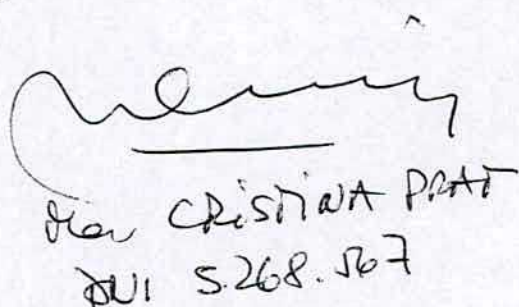 CRISTINA PRAT
DNI 5.268.567